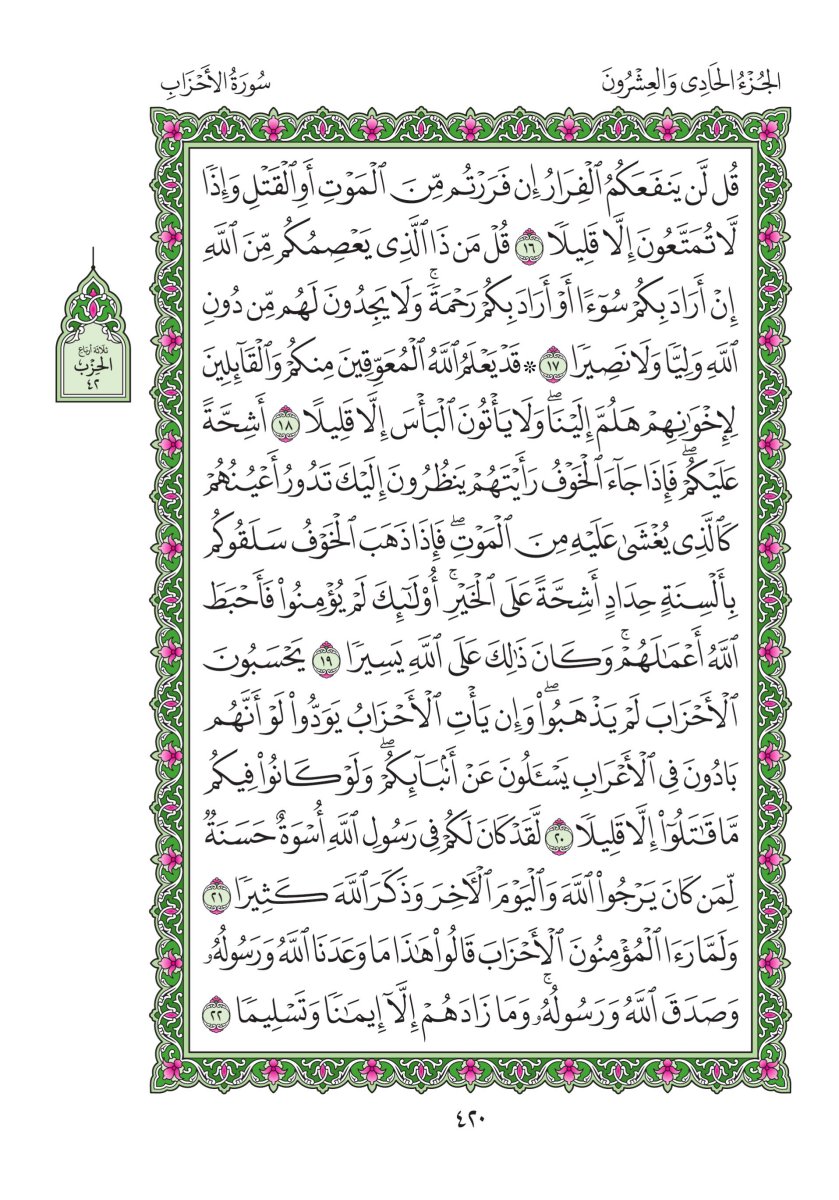 الجُزْءُ الحَادِى وَالعِشْرُونَ
سُورَةُ الأَحْزَابِ
قُل لَّن يَنفَعَكُمُ ٱلْفِرَارُ إِن فَرَرْتُم مِّنَ ٱلْمَوْتِ أَوِ ٱلْقَتْلِ وَإِذًا
لَّا تُمَتَّعُونَ إِلَّا قَلِيلًا ١٦ قُلْ مَن ذَا ٱلَّذِى يَعْصِمُكُم مِّنَ ٱللَّهِ
إِنْ أَرَادَ بِكُمْ سُوٓءًا أَوْ أَرَادَ بِكُمْ رَحْمَةًۚ وَلَا يَجِدُونَ لَهُم مِّن دُونِ
ٱللَّهِ وَلِيًّا وَلَا نَصِيرًا ١٧ * قَدْ يَعْلَمُ ٱللَّهُ ٱلْمُعَوِّقِينَ مِنكُمْ وَٱلْقَآئِلِينَ
لِإِخْوَٰنِهِمْ هَلُمَّ إِلَيْنَاۖ وَلَا يَأْتُونَ ٱلْبَأْسَ إِلَّا قَلِيلًا ١٨ أَشِحَّةً
عَلَيْكُمْۖ فَإِذَا جَآءَ ٱلْخَوْفُ رَأَيْتَهُمْ يَنظُرُونَ إِلَيْكَ تَدُورُ أَعْيُنُهُمْ
كَٱلَّذِى يُغْشَىٰ عَلَيْهِ مِنَ ٱلْمَوْتِۖ فَإِذَا ذَهَبَ ٱلْخَوْفُ سَلَقُوكُم
بِأَلْسِنَةٍ حِدَادٍ أَشِحَّةً عَلَى ٱلْخَيْرِۚ أُو۟لَٰٓئِكَ لَمْ يُؤْمِنُوا۟ فَأَحْبَطَ
ٱللَّهُ أَعْمَٰلَهُمْۚ وَكَانَ ذَٰلِكَ عَلَى ٱللَّهِ يَسِيرًا ١٩ يَحْسَبُونَ
ٱلْأَحْزَابَ لَمْ يَذْهَبُوا۟ۖ وَإِن يَأْتِ ٱلْأَحْزَابُ يَوَدُّوا۟ لَوْ أَنَّهُم
بَادُونَ فِى ٱلْأَعْرَابِ يَسْـَٔلُونَ عَنْ أَنۢبَآئِكُمْۖ وَلَوْ كَانُوا۟ فِيكُم
مَّا قَٰتَلُوٓا۟ إِلَّا قَلِيلًا ٢٠ لَّقَدْ كَانَ لَكُمْ فِى رَسُولِ ٱللَّهِ أُسْوَةٌ حَسَنَةٌ
لِّمَن كَانَ يَرْجُوا۟ ٱللَّهَ وَٱلْيَوْمَ ٱلْءَاخِرَ وَذَكَرَ ٱللَّهَ كَثِيرًا ٢١
وَلَمَّا رَءَا ٱلْمُؤْمِنُونَ ٱلْأَحْزَابَ قَالُوا۟ هَٰذَا مَا وَعَدَنَا ٱللَّهُ وَرَسُولُهُۥ
وَصَدَقَ ٱللَّهُ وَرَسُولُهُۥۚ وَمَا زَادَهُمْ إِلَّآ إِيمَٰنًا وَتَسْلِيمًا ٢٢
ثلاثة أرباع
الحزب
٤٢
٤٢٠